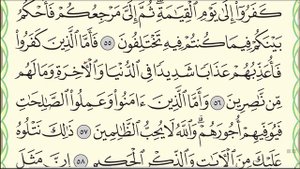 كَفَرُوٓا۟ إِلَىٰ يَوْمِ ٱلْقِيَـٰمَةِ ۖ ثُمَّ إِلَىَّ مَرْجِعُكُمْ فَأَحْكُمُ
بَيْنَكُمْ فِيمَا كُنتُمْ فِيهِ تَخْتَلِفُونَ ٥٥ فَأَمَّا ٱلَّذِينَ كَفَرُوا۟
فَأُعَذِّبُهُمْ عَذَابًا شَدِيدًا فِى ٱلدُّنْيَا وَٱلْـَٔاخِرَةِ وَمَا لَهُم
مِّن نَّـٰصِرِينَ ٥٦ وَأَمَّا ٱلَّذِينَ ءَامَنُوا۟ وَعَمِلُوا۟ ٱلصَّـٰلِحَـٰتِ
فَيُوَفِّيهِمْ أُجُورَهُمْ ۗ وَٱللَّهُ لَا يُحِبُّ ٱلظَّـٰلِمِينَ ٥٧ ذَٰلِكَ نَتْلُوهُ
عَلَيْكَ مِنَ ٱلْـَٔايَـٰتِ وَٱلذِّكْرِ ٱلْحَكِيمِ ٥٨ إِنَّ مَثَلَ